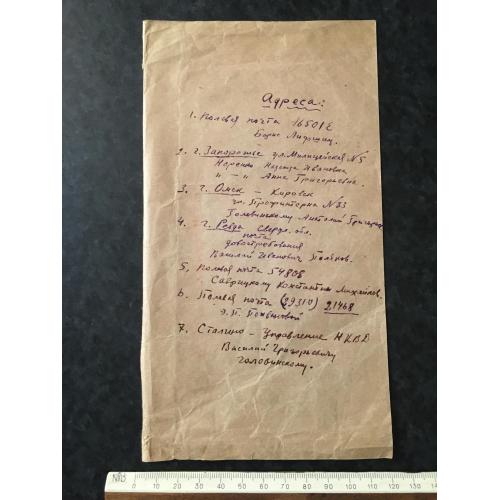 Адреса:
1. Полевая почта 16501Е
Борис Лифшиц.
2. г. Запорожье ул. Милицейская №5
Надежда Ивановна
" - " - Анна Григорьевна.
3. г. Омск - Кировск
ул. №33
Головинскому Анатолий Григор
4. г. Ревда Свердл. обл.
почта
довостребования
Василий Иванович Поляков.
5. Полевая почта 54808
Савицкому Константин Михайлов.
6. Полевая почта (29310) 21468
Э. П.
7. Сталино - Управление НКВД
Василий Григорьевичу
Головинскому.
10 20 30 40 50 60 70 80 90 100 110 120 130 140